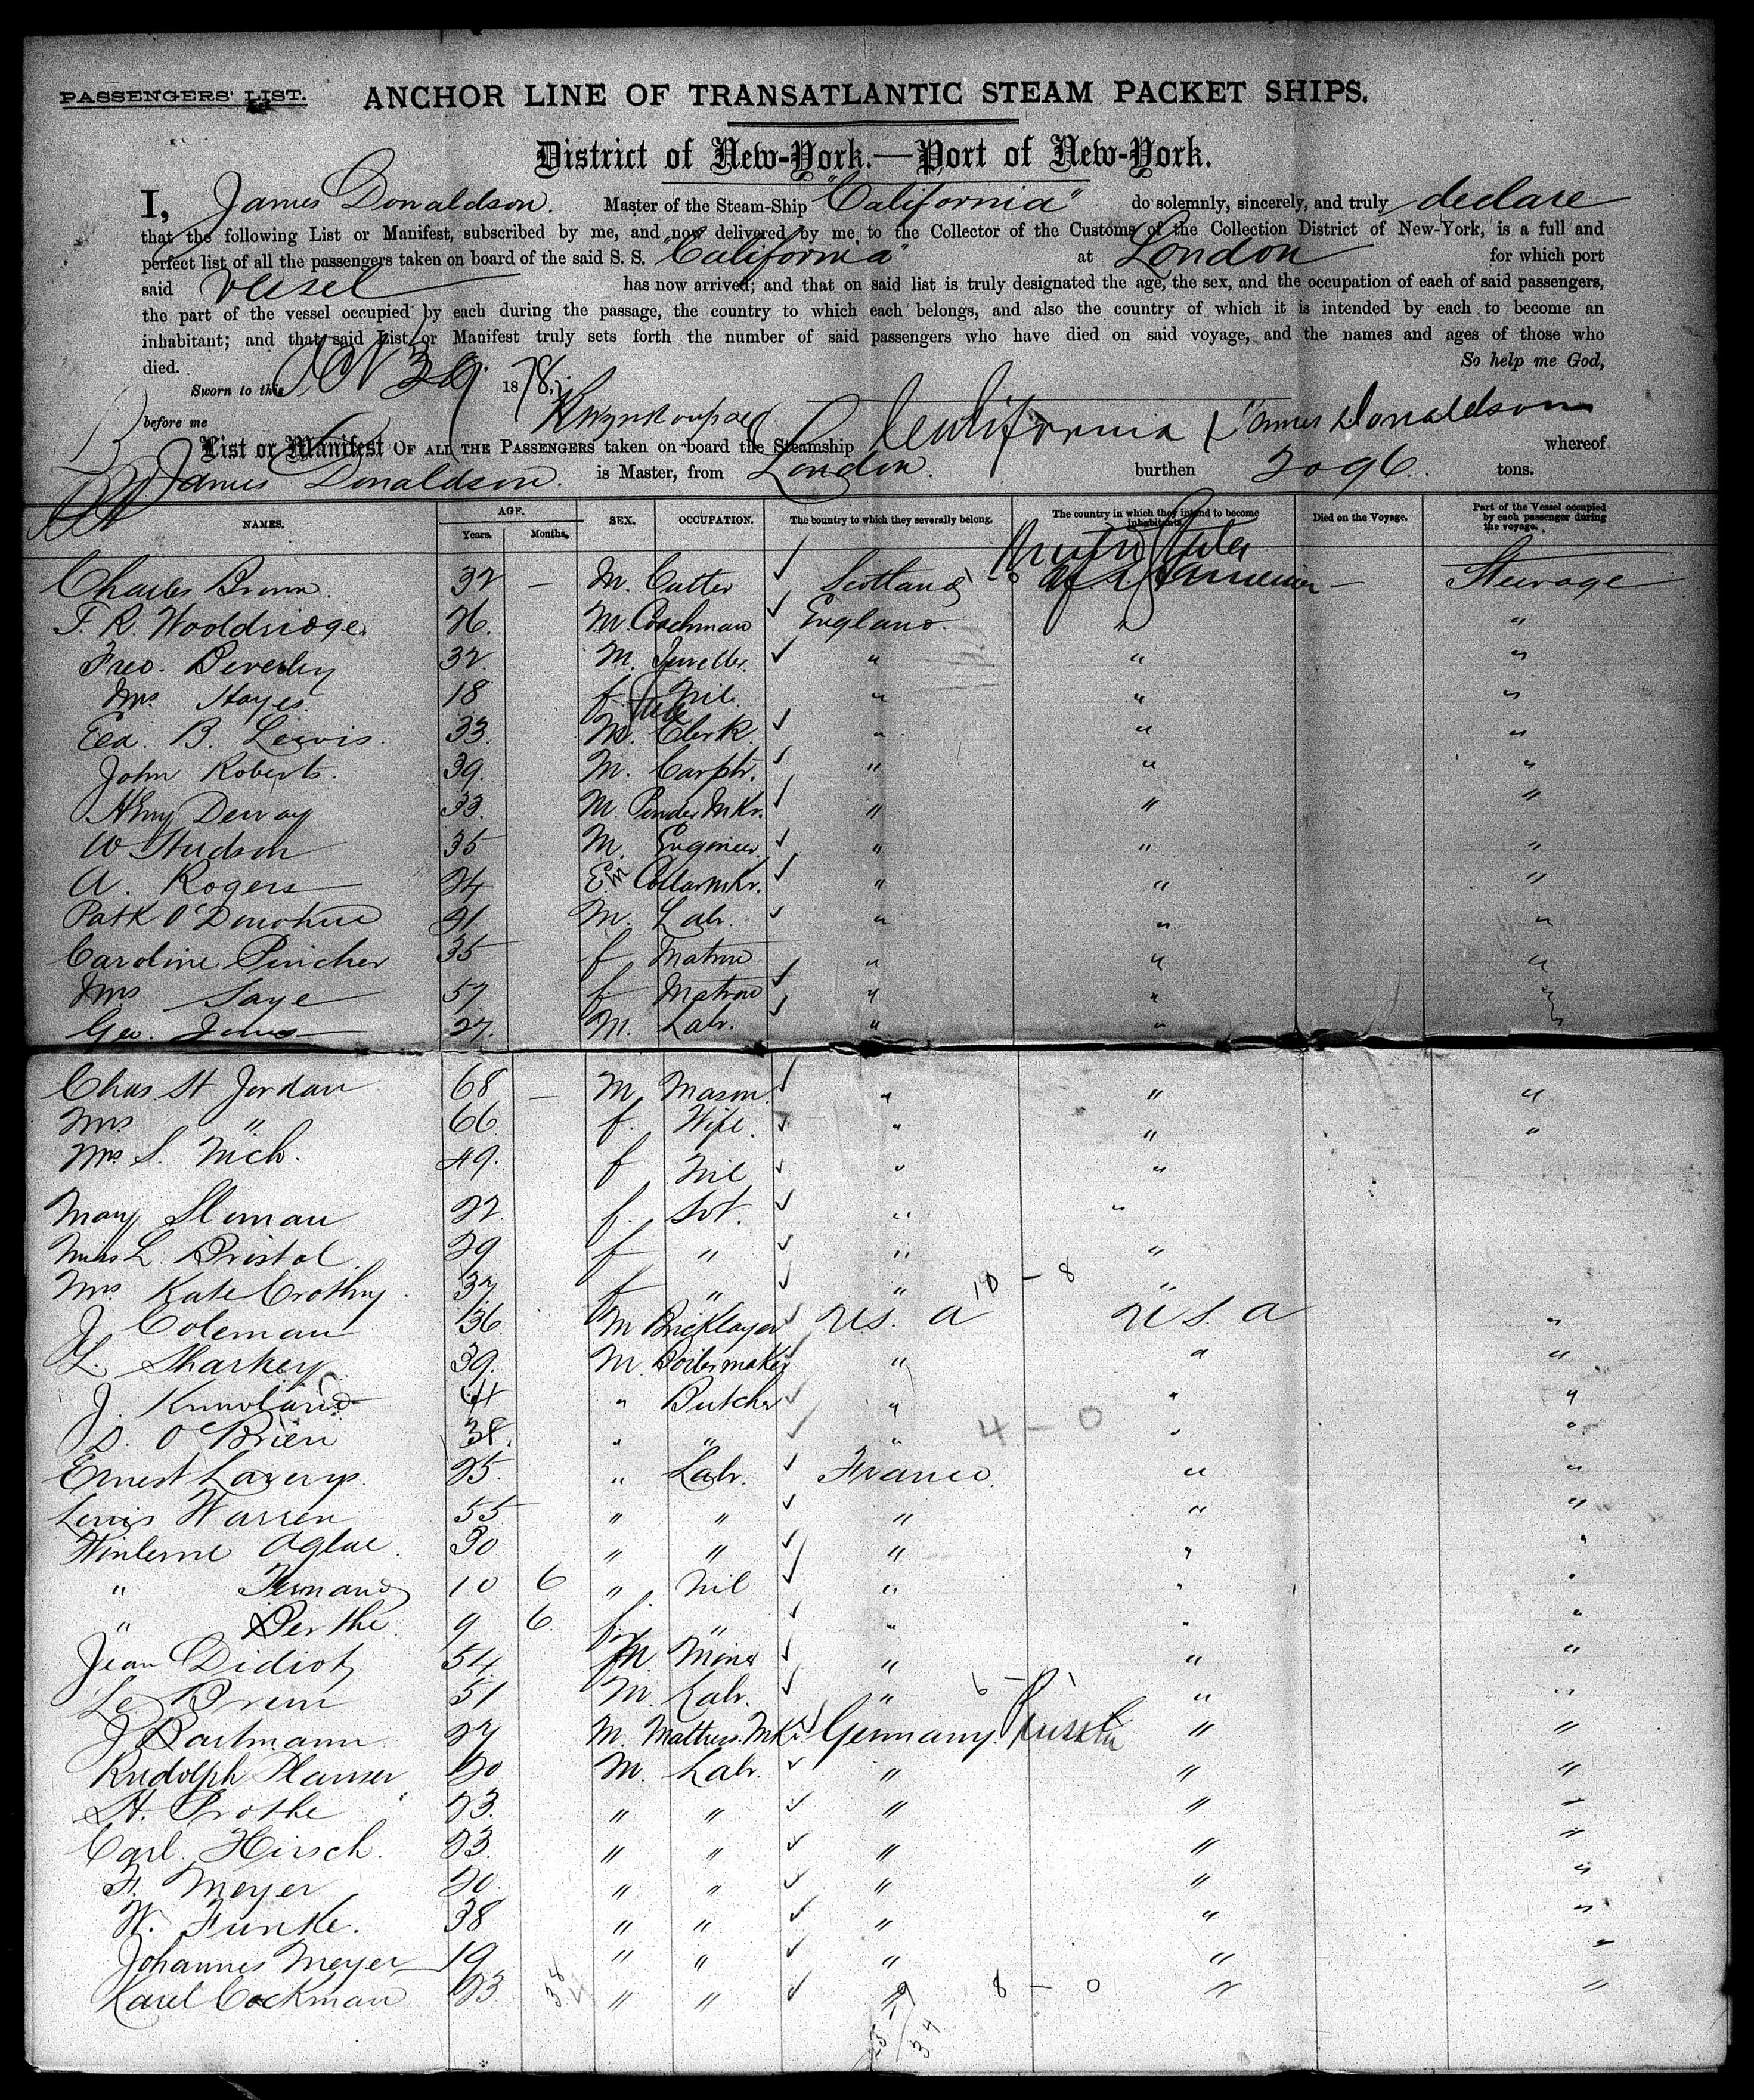 PASSENGERS' LIST. ANCHOR LINE OF TRANSATLANTIC STEAM PACKET SHIPS.
District of New-York.—Port of New-York.
I, James Donaldson. Master of the Steam-Ship "California" do solemnly, sincerely, and truly declare
that the following List or Manifest, subscribed by me, and now delivered by me to the Collector of the Customs of the Collection District of New-York, is a full and
perfect list of all the passengers taken on board of the said S. S. "California" at London for which port
said Vessel has now arrived; and that on said list is truly designated the age, the sex, and the occupation of each of said passengers,
the part of the vessel occupied by each during the passage, the country to which each belongs, and also the country of which it is intended by each to become an
inhabitant; and that said List or Manifest truly sets forth the number of said passengers who have died on said voyage, and the names and ages of those who
died. So help me God,
Sworn to this 1878.
before me James Donaldson
List or Manifest OF ALL THE PASSENGERS taken on board the Steamship California whereof
James Donaldson. is Master, from London. burthen 2096. tons.
NAMES. AGE. Years. Months. SEX. OCCUPATION. The country to which they severally belong. The country in which they intend to become inhabitants. Died on the Voyage. Part of the Vessel occupied by each passenger during the voyage.
United States
Charles Brown. 32 — M. Cutter Scotland of America — Steerage
F. R. Wooldridge. 26. M. Coachman England. " "
Fred. Beverley 32. M. Jeweller. " " "
Mrs. Hayes. 18 f. Nil. " " "
Ed. B. Lewis. 33. M. Clerk. " " "
John Roberts. 39. M. Carptr. " " "
Hny Dewey 33. M. MKr. " " "
W Hudson 35 M. Engineer. " " "
A. Rogers 24 M Collarmkr. " " "
Patk O'Donohue 41 M. Labr. " " "
Caroline Pincher 35 f Matron " " "
Mrs Saye 57 f. Matron " " "
Geo. Jones 27. M. Labr. " " "
Chas. H Jordan 68 — M Mason. " " "
Mrs " 66 f. Wife. " " "
Mrs. S. Nich. 49. f Nil " "
Mary Sloman 22. f. Svt. " "
Miss L. Bristol. 29 f " " "
Mrs. Kate Crothy. 37 f " " 18 — 8 "
J. Coleman 36. M Bricklayer U.S. A U.S. A "
L. Sharkey. 39. M. Boilermaker " " "
J. 44 " Butcher " " "
D. O'Brien 38. " " " 4 — 0 " "
Ernest 25. " Labr. France. " "
Lewis Warren 55 " " " " "
Aglae. 30 " " " " "
" Fernand 10 6 " Nil " " "
" Berthe. 9 6. f. " " " "
Jean Didiot 54. M. Miner " " "
Le Brun 51 M. Labr. " 6 — " "
J Bartmann 27 M. Mattress MKr. Germany. Prussia " "
Rudolph Planser 20 M. Labr. " " "
H. Prothe 23. " " " " "
Carl. Hirsch. 23. " " " " "
F. Meyer 20. " " " " "
W. Funke. 38 " " " " "
Johannes Meyer 19 " " " " "
Karel Cockman 23 34 " " " 8 — 0 " "
34